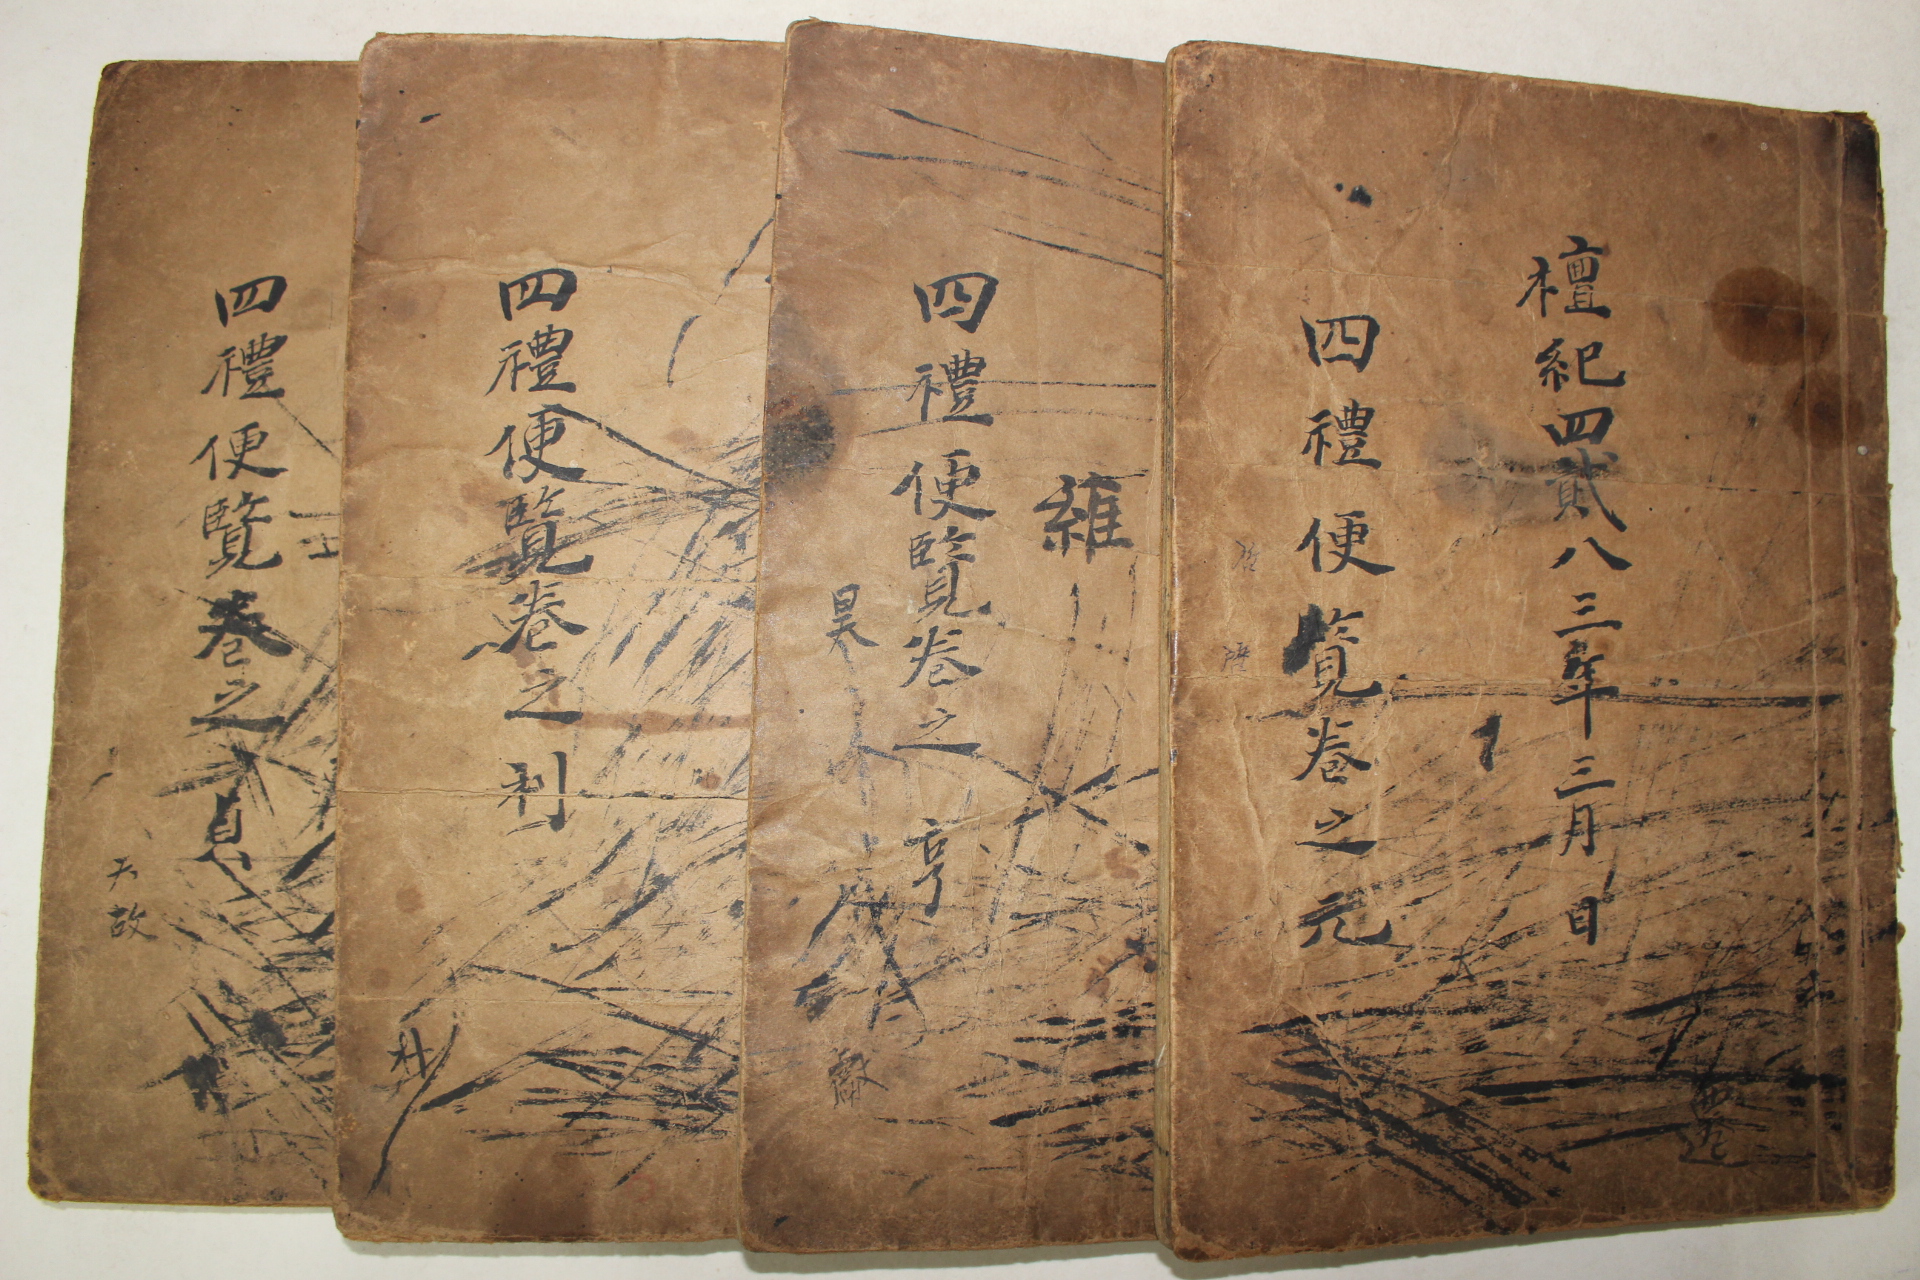 檀紀四貳八三年三月 日
四禮便覽卷之元
四禮便覽卷之亨
四禮便覽卷之利
四禮便覽卷之貞
昊